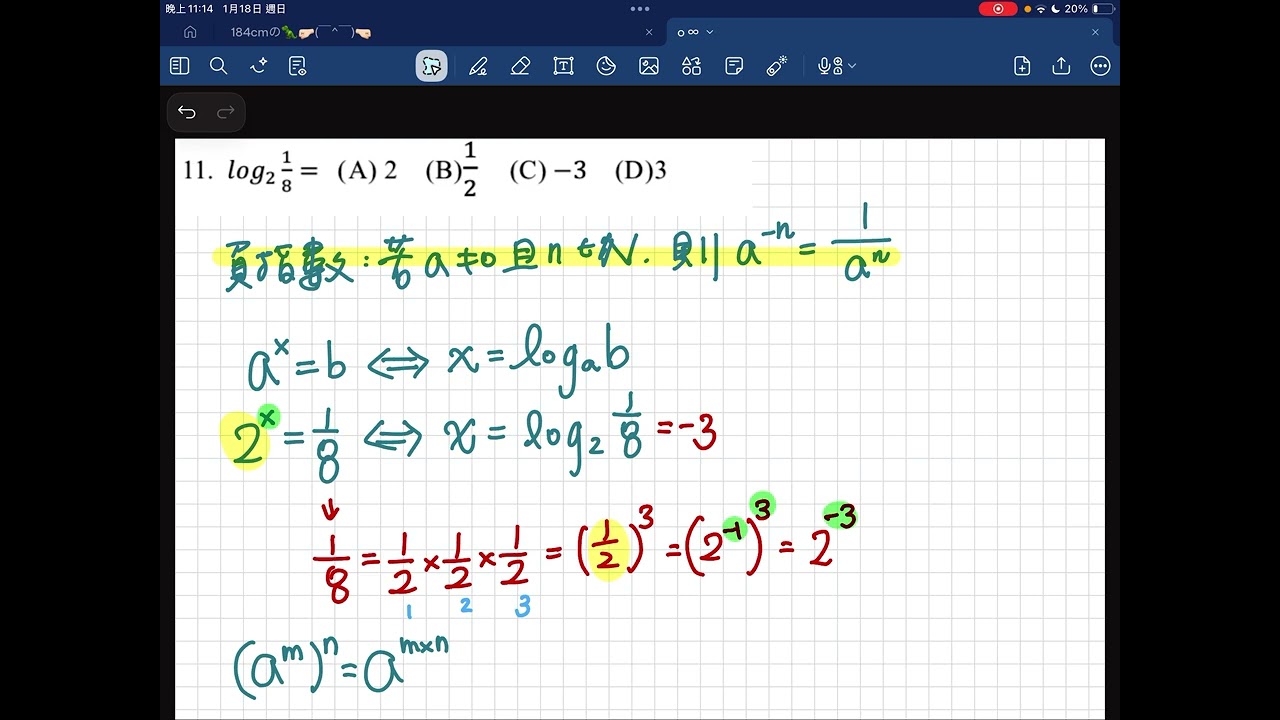 晚上11:14 1月18日 週日
20%
184cmの🦖🤛🏻(¯ˆ¯)🤜🏻
○ ∞
11. log₂ 1/8 = (A) 2 (B) 1/2 (C) −3 (D)3
負指數：若 a≠0 且 n∈N. 則 a⁻ⁿ = 1/aⁿ
aˣ = b ⟺ x = logₐb
2ˣ = 1/8 ⟺ x = log₂ 1/8 = -3
↓
1/8 = 1/2 × 1/2 × 1/2 = (1/2)³ = (2⁻¹)³ = 2⁻³
1 2 3
(aᵐ)ⁿ = aᵐˣⁿ